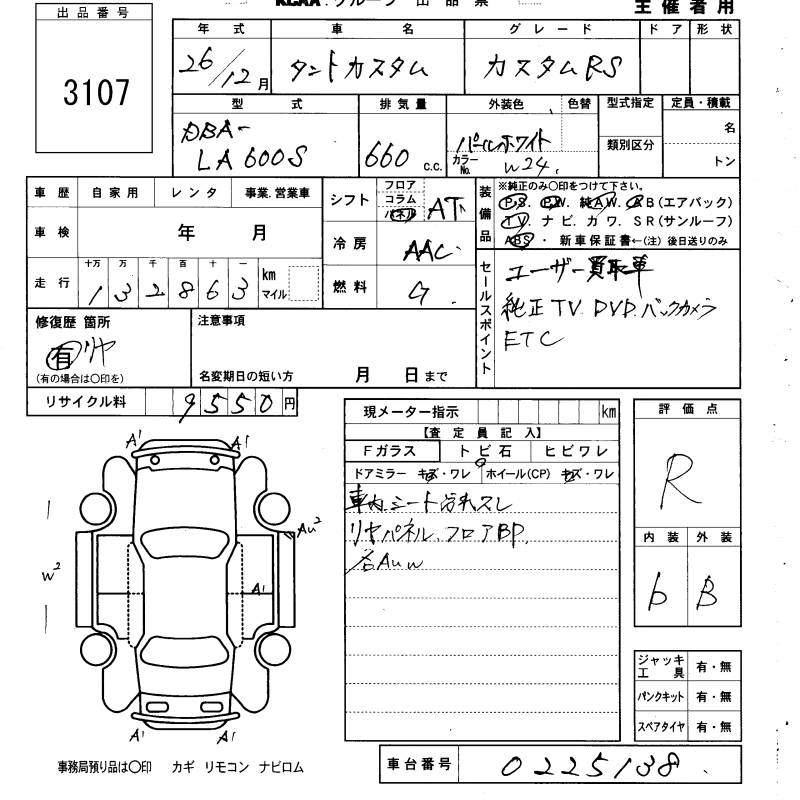 KCAA.グループ 出品票
主催者用
出品番号
3107
年式 車名 グレード ドア 形状
26/12月 タントカスタム カスタムRS
型式 排気量 外装色 色替 型式指定 定員・積載
DBA-
LA600S 660 c.c. パールホワイト
カラーNo. W24. 類別区分 名
トン
車歴 自家用 レンタ 事業.営業車
車検 年 月
走行 十万 万 千 百 十 一
132863 km
マイル
シフト フロア コラム パネル AT
冷房 AAC
燃料 ガ
装備品 ※純正のみ○印をつけて下さい。
P.S. P.W. 純A.W. A.B(エアバック)
TV. ナビ. カワ. SR(サンルーフ)
ABS・ 新車保証書←(注)後日送りのみ
セールスポイント
ユーザー買取車
純正TV.DVD.バックカメラ
ETC
修復歴 箇所
有 リヤ
(有の場合は○印を)
注意事項
名変期日の短い方 月 日まで
リサイクル料 9550円
現メーター指示 km
【査定員記入】
Fガラス トビ石 ヒビワレ
ドアミラー キズ・ワレ ホイール(CP) キズ・ワレ
車内.シート汚れスレ
リヤパネル.フロアBP.
各AUW
評価点
R
内装 外装
b B
ジャッキ工具 有・無
パンクキット 有・無
スペアタイヤ 有・無
A' A'
AU²
W²
A'
A' A'
事務局預り品は○印 カギ リモコン ナビロム
車台番号 0225138